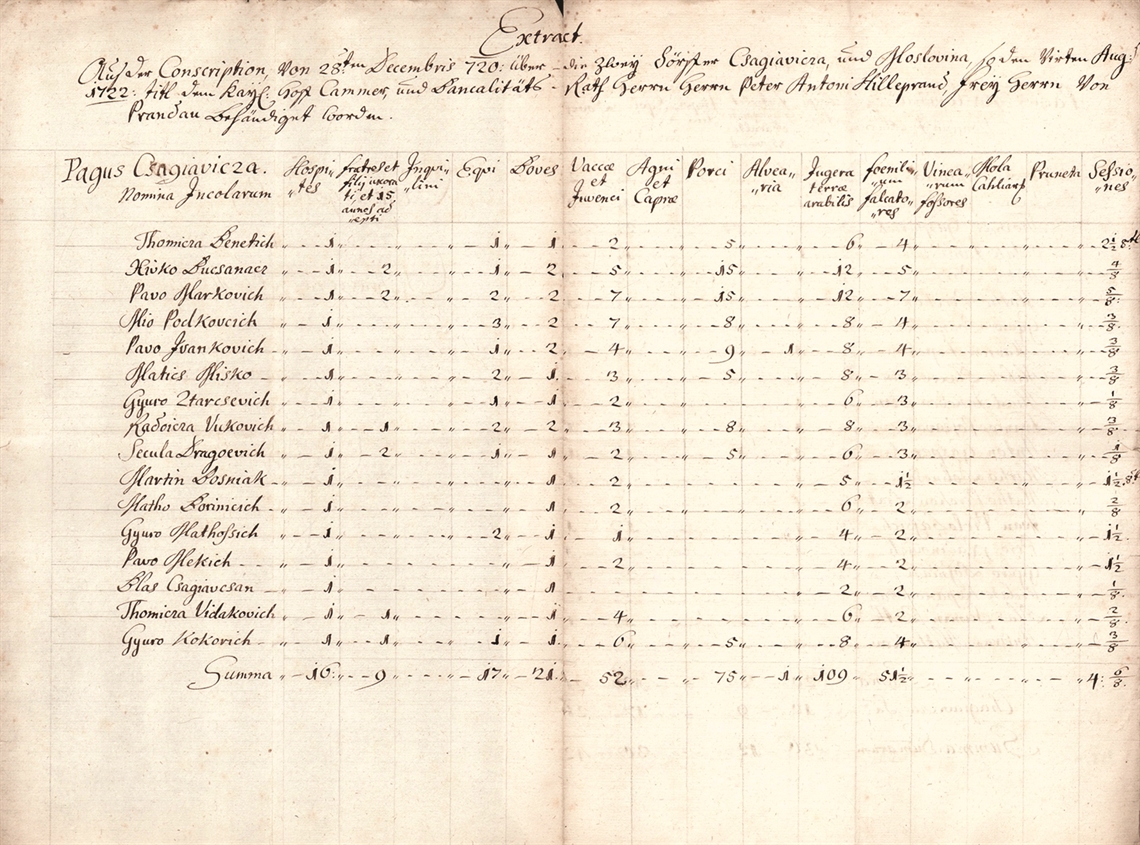 Extract.
Auß der Conscription, von 28ten Decembris 720: über die zwey Dörffer Csagiavicza, und Moslovina, so den Virten Aug:
1722: titl dem Kayl: Hoff Cammer, und Bancalitäts-Rath Herrn Herrn Peter Antoni Hilleprand, Frey Herrn von
Prandau behändiget worden.
Pagus Csagiavicza. Nomina Incolarum Hospites fratres et filij uxorati, et 15 annes adepti Inquilini Equi Boves Vaccæ et Juvenci Agni et Capræ Porci Alvearia Jugera terræ arabilis foenilium falcatores Vinearum fossores Mola Pruneta Sessiones
Thomicza Benetich 1 1 1 2 5 6 4 2 1/2 8tl
Xivko Bucsanacz 1 2 1 2 5 15 12 5 4/8
Pavo Markovich 1 2 2 2 7 15 12 7 5/8
Mio Podkovcich 1 3 2 7 8 8 4 3/8
Pavo Ivankovich 1 1 2 4 9 1 8 4 3/8
Matics Misko 1 2 1 3 5 8 3 3/8
Gyuro Ztarcsevich 1 1 1 2 6 3 1/8
Radoicza Vukovich 1 1 2 2 3 8 8 3 3/8
Secula Dragoevich 1 2 1 1 2 5 6 3 1/8
Martin Bosniak 1 1 2 5 1 1/2 1 1/2 8t
Matho Borincich 1 1 2 6 2 2/8
Gyuro Mathossich 1 2 1 1 4 2 1 1/2
Pavo Mekich 1 1 2 4 2 1 1/2
Blas Csagiavcsan 1 1 2 2 1/8
Thomicza Vidakovich 1 1 1 4 6 2 2/8
Gyuro Kokovich 1 1 1 1 6 5 8 4 3/8
Summa 16 9 17 21 52 75 1 109 51 1/2 4 6/8